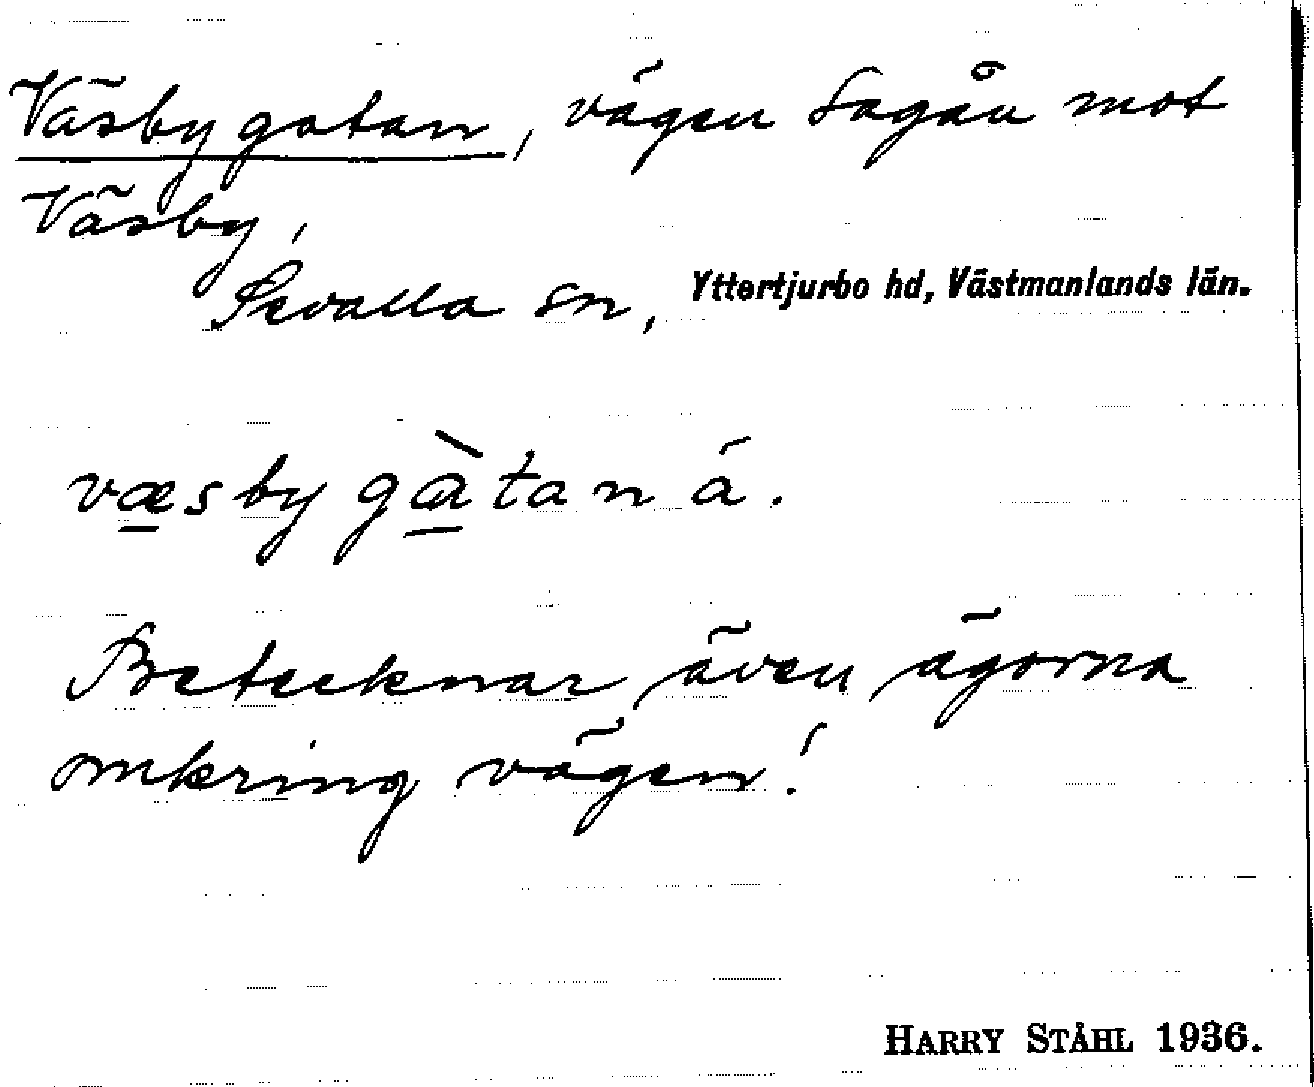 Väsbygatan, vägen Sagån mot
Väsby,
Sevalla sn, Yttertjurbo hd, Västmanlands län.
væsbygàtaná.
Betecknar även ägorna
omkring vägen!
HARRY STÅHL 1936.